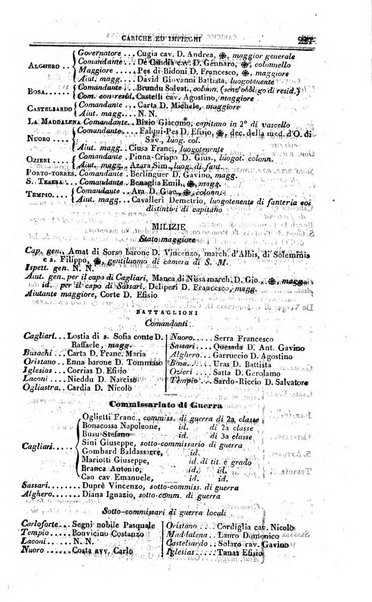 CARICHE ED IMPIEGHI 227
Governatore .. Cugia cav. D. Andrea, maggior generale
ALGHERO.. Comandante .. De Candia cav. D. Gennaro, colonnello
Maggiore .... Pes di Bidoni D. Francesco, maggiore
Aiut. magg. ..
BOSA...... Comandante .. Brundu Salvat. (senz'obbligo di resid.)
Com. con resid. Castelli cav. Agostino, maggiore
CASTELSARDO Comandante .. Carta D. Michele, magg.
Aiut. magg. .. N. N.
LA MADDALENA Comandante. Bisio Giacomo, capitano in 2° di vascello
NUORO... Comandante .. Falqui-Pes D. Efisio, dec. della med. d'O. di
Sav., luog. col.
Aiut. magg. .. Ciusa Franc., luogotenente
OZIERI.... Comandante .. Pinna-Crispo D. Gius., luogot. colonn.
Aiut. magg. .. Azara Sim., luog. di fant.
PORTO-TORRES. Comandante. Berlinguer D. Gavino, magg.
S. TERESA.. Comandante .. Benaglia Emil., magg.
TEMPIO... Comandante ..
Aiut. magg. .. Cavalleri Demetrio, luogotenente di fanteria coi
distintivi di capitano
MILIZIE
Stato maggiore
Cap. gen., Amat di Sorso barone D. Vincenzo, march. d'Albis, di Soleminis
ec. Filippo, gentiluomo di camera di S. M.
Ispett. gen. N. N.
Aiut. gen. per il capo di Cagliari, Manca di Nissa march. D. Gio., magg.
id. per il capo di Sassari, Deliperi D. Francesco, magg.
Aiutante maggiore, Corte D. Efisio
BATTAGLIONI
Comandanti
Cagliari.... Lostia di s. Sofia conte D.
Raffaele, magg.
Busachi .... Carta D. Franc. Maria
Oristano ... Enna barone D. Tommaso
Iglesias .... Corrias D. Efisio
Laconi ..... Nieddu D. Narciso
Ogliastra ... Cardia D. Nicolò
Nuoro..... Serra Francesco
Sassari.... Quesada D. Ant. Gavino
Alghero.... Garruccio D. Agostino
Bosa...... Uras D. Battista
Ozieri .... Satta D. Gerolamo
Tempio.... Sardo-Riccio D. Salvatore
Commissariato di Guerra
Cagliari... Oglietti Franc., commiss. di guerra di 2a classe
Bonacossa Napoleone, id. di 3a classe
Busu Stefano, id. di 3a classe
Sini Giuseppe, sotto-commissario di guerra
Gombard Baldassarre, id.
Mariotti Giuseppe, id. di tit. e grado
Branca Antonio, id.
Cao cav. Emanuele, id.
Sassari.... Duprè Vincenzo, sotto-commiss. di guerra
Alghero.... Diana Ignazio, sotto-commiss. di guerra
Sotto-commissari di guerra locali
Carloforte... Segni nobile Pasquale
Tempio..... Bonvicino Costanzo
Laconi..... N. N.
Nuoro..... Costa avv. Carlo
Oristano .... Cordiglia cav. Nicolò
Maddalena.. Lauro Domenico
Castelsardo.. Solaro cav. Gavino
Iglesias .... Tanas Efisio